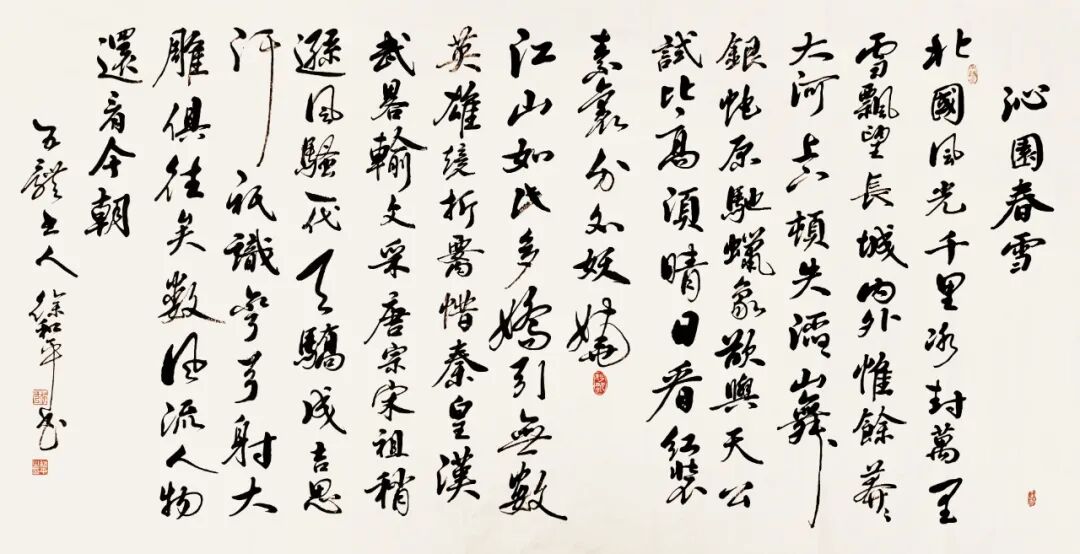 沁園春雪
北國風光千里冰封萬里
雪飄望長城內外惟餘莽〻
大河上下頓失滔〻山舞
銀蛇原馳蠟象欲與天公
試比高須晴日看紅裝
素裹分外妖嬈
江山如此多嬌引無數
英雄競折腰惜秦皇漢
武畧輸文采唐宗宋祖稍
遜風騷一代天驕成吉思
汗祇識彎弓射大
雕俱往矣數風流人物
還看今朝
五體書人徐和平書